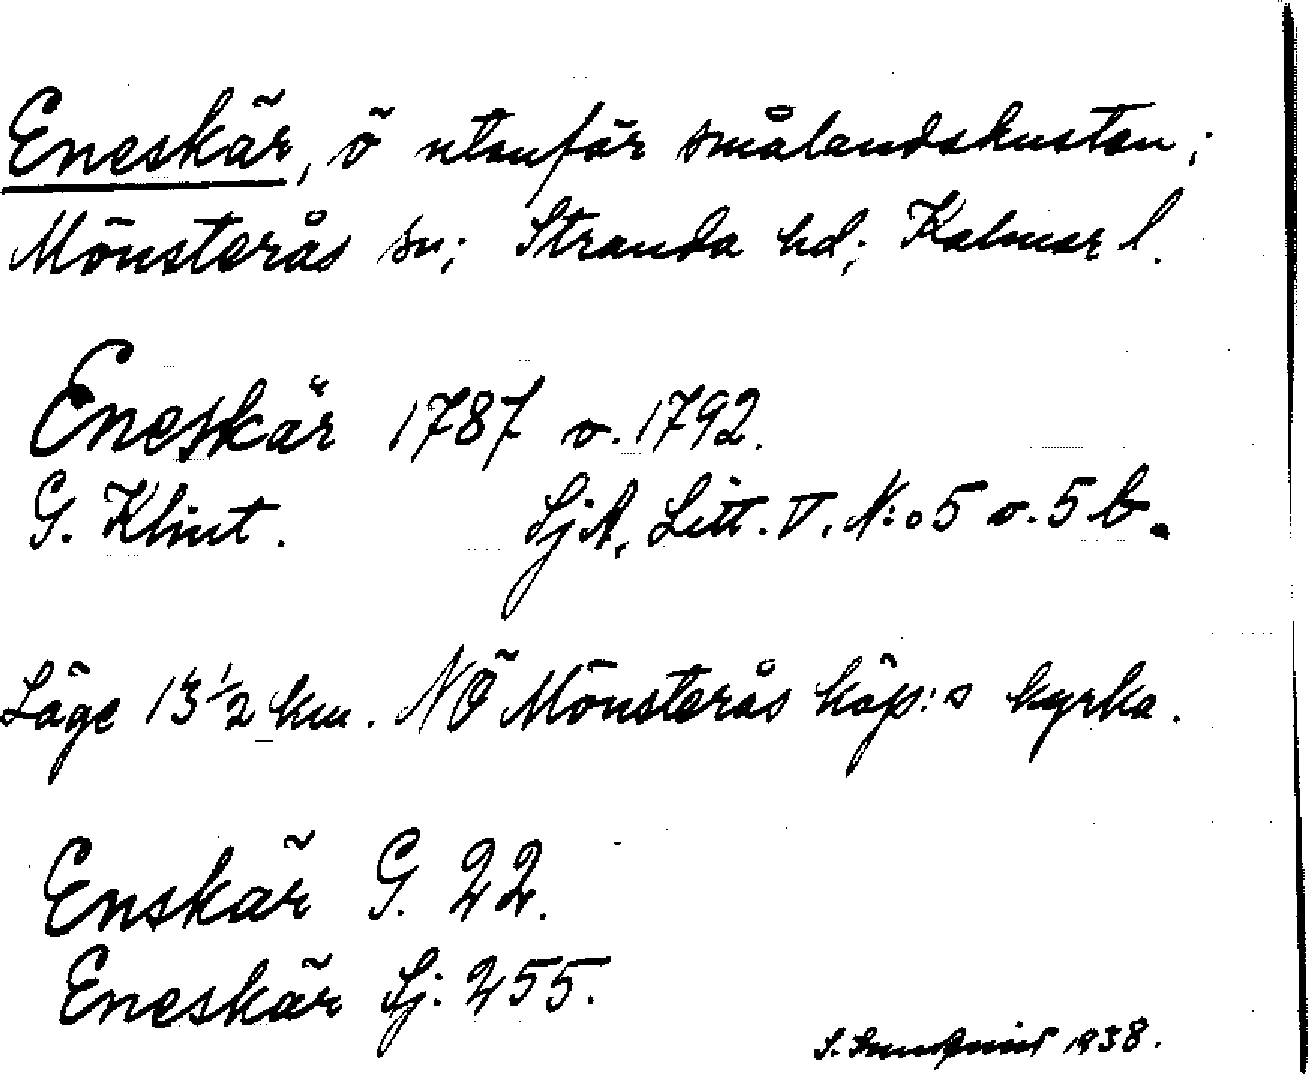 Eneskär, ö utanför smålandskusten;
Mönsterås sn; Stranda hd; Kalmar l.
Eneskär 1787 o. 1792.
G. Klint. SjA, Litt. V. N:o 5 o. 5 b.
Läge 13 1/2 km. NÖ Mönsterås köp:s kyrka.
Enskär G. 22.
Eneskär Sj. 255.
S. 1938.